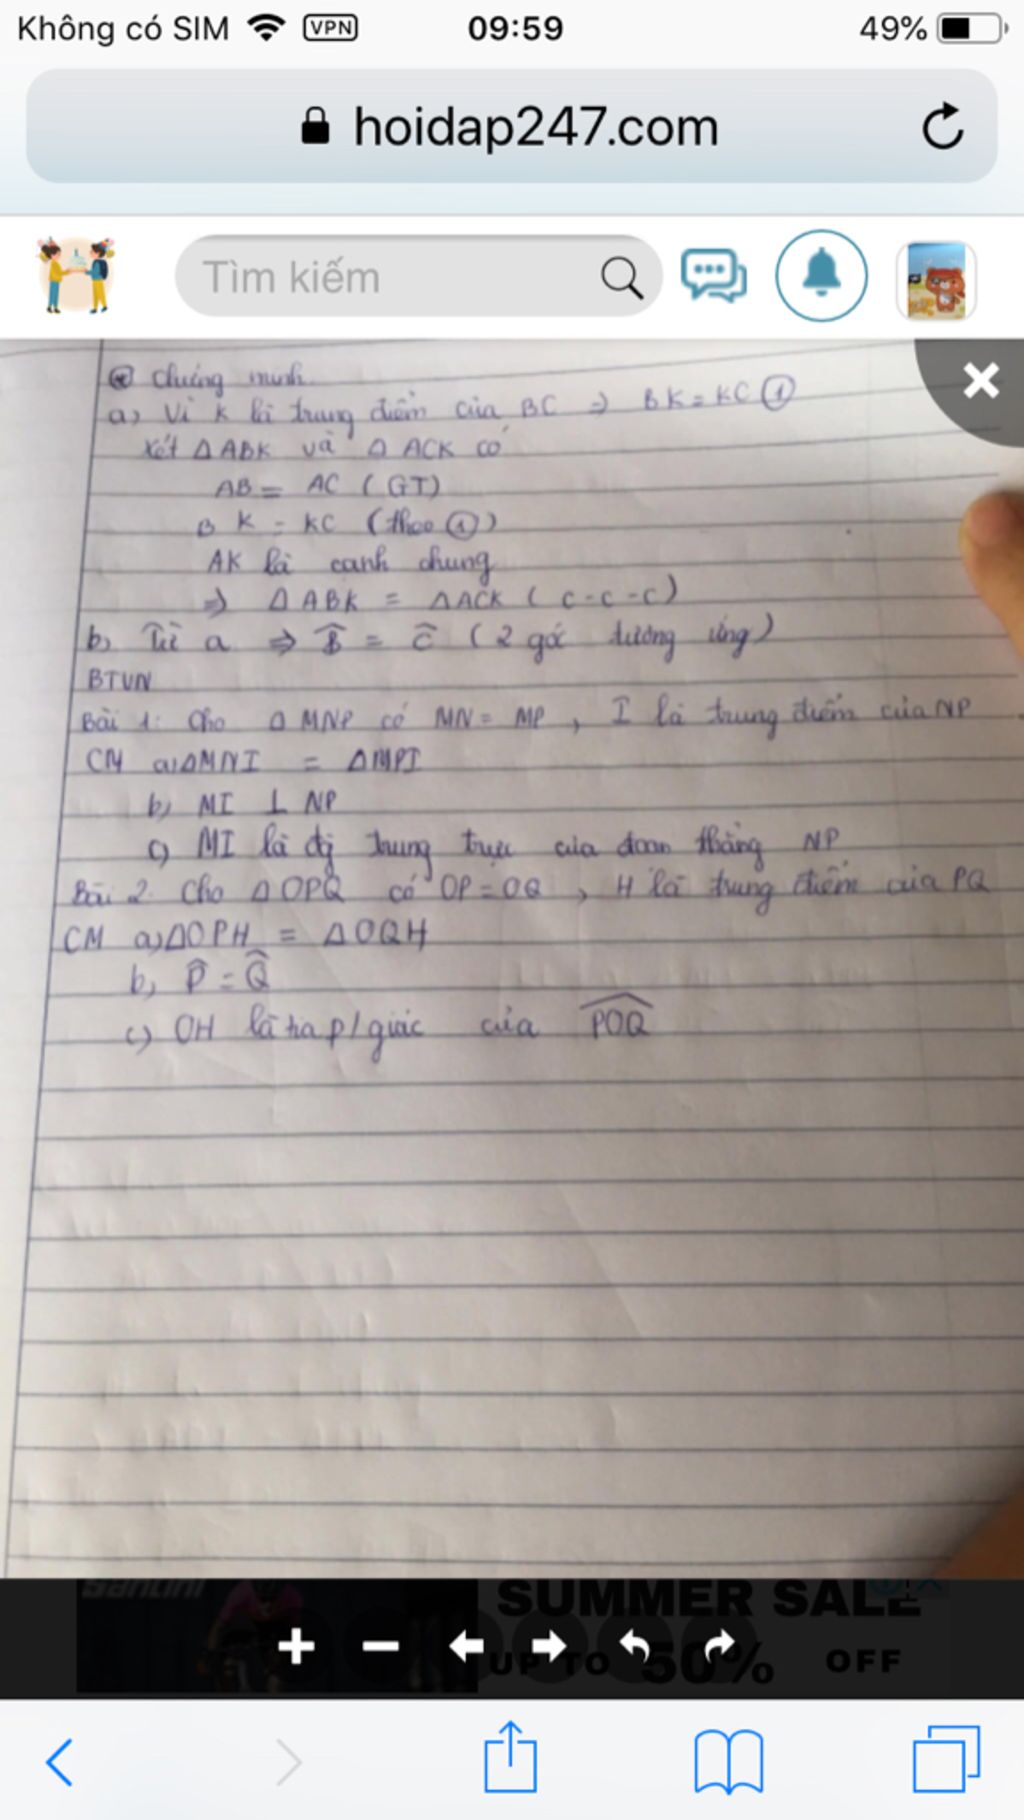 Không có SIM VPN 09:59 49%
hoidap247.com
Tìm kiếm
Chứng minh
a, Vì K là trung điểm của BC => BK = KC ①
Xét △ABK và △ACK có
AB = AC (GT)
BK = KC (theo ①)
AK là cạnh chung
=> △ABK = △ACK (c-c-c)
b, Từ a => B̂ = Ĉ (2 góc tương ứng)
BTVN
Bài 1: Cho △MNP có MN = MP, I là trung điểm của NP
CM a, △MNI = △MPI
b, MI ⊥ NP
c) MI là đg trung trực của đoạn thẳng NP
Bài 2. Cho △OPQ có OP = OQ, H là trung điểm của PQ
CM a, △OPH = △OQH
b, P̂ = Q̂
c) OH là tia p/giác của P͡OQ
Santini
SUMMER SALE
UP TO 50% OFF